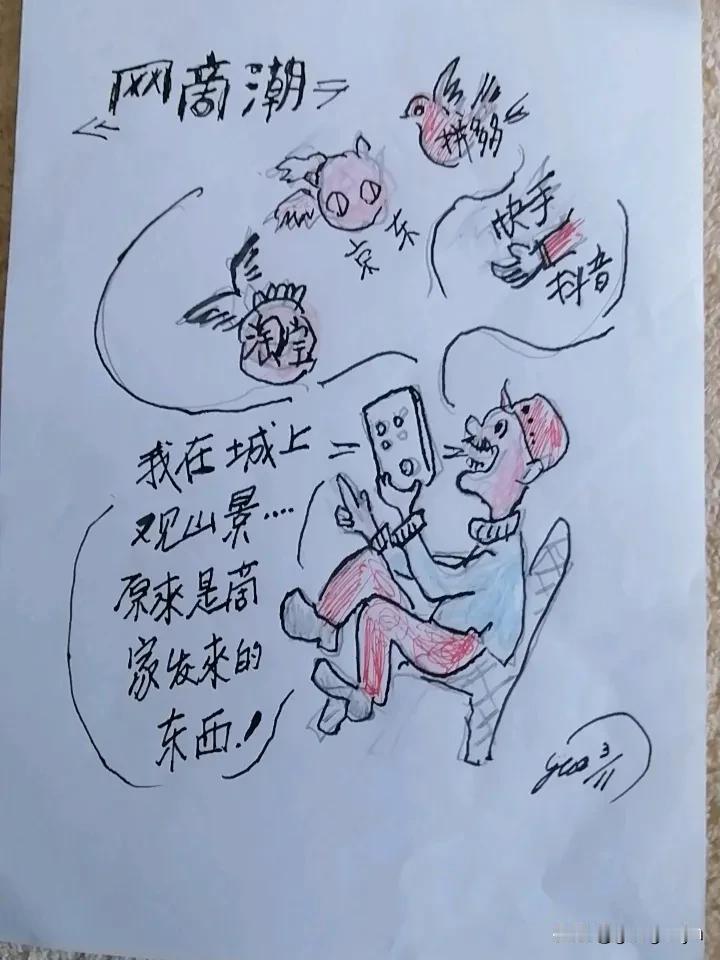 网啇潮
拼多多
京东
快手
抖音
淘宝
我在城上
观山景····
原來是啇
家发來的
东西.!
3/11